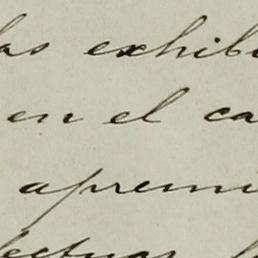 las exhibi
en el ca
apremi
lectuas